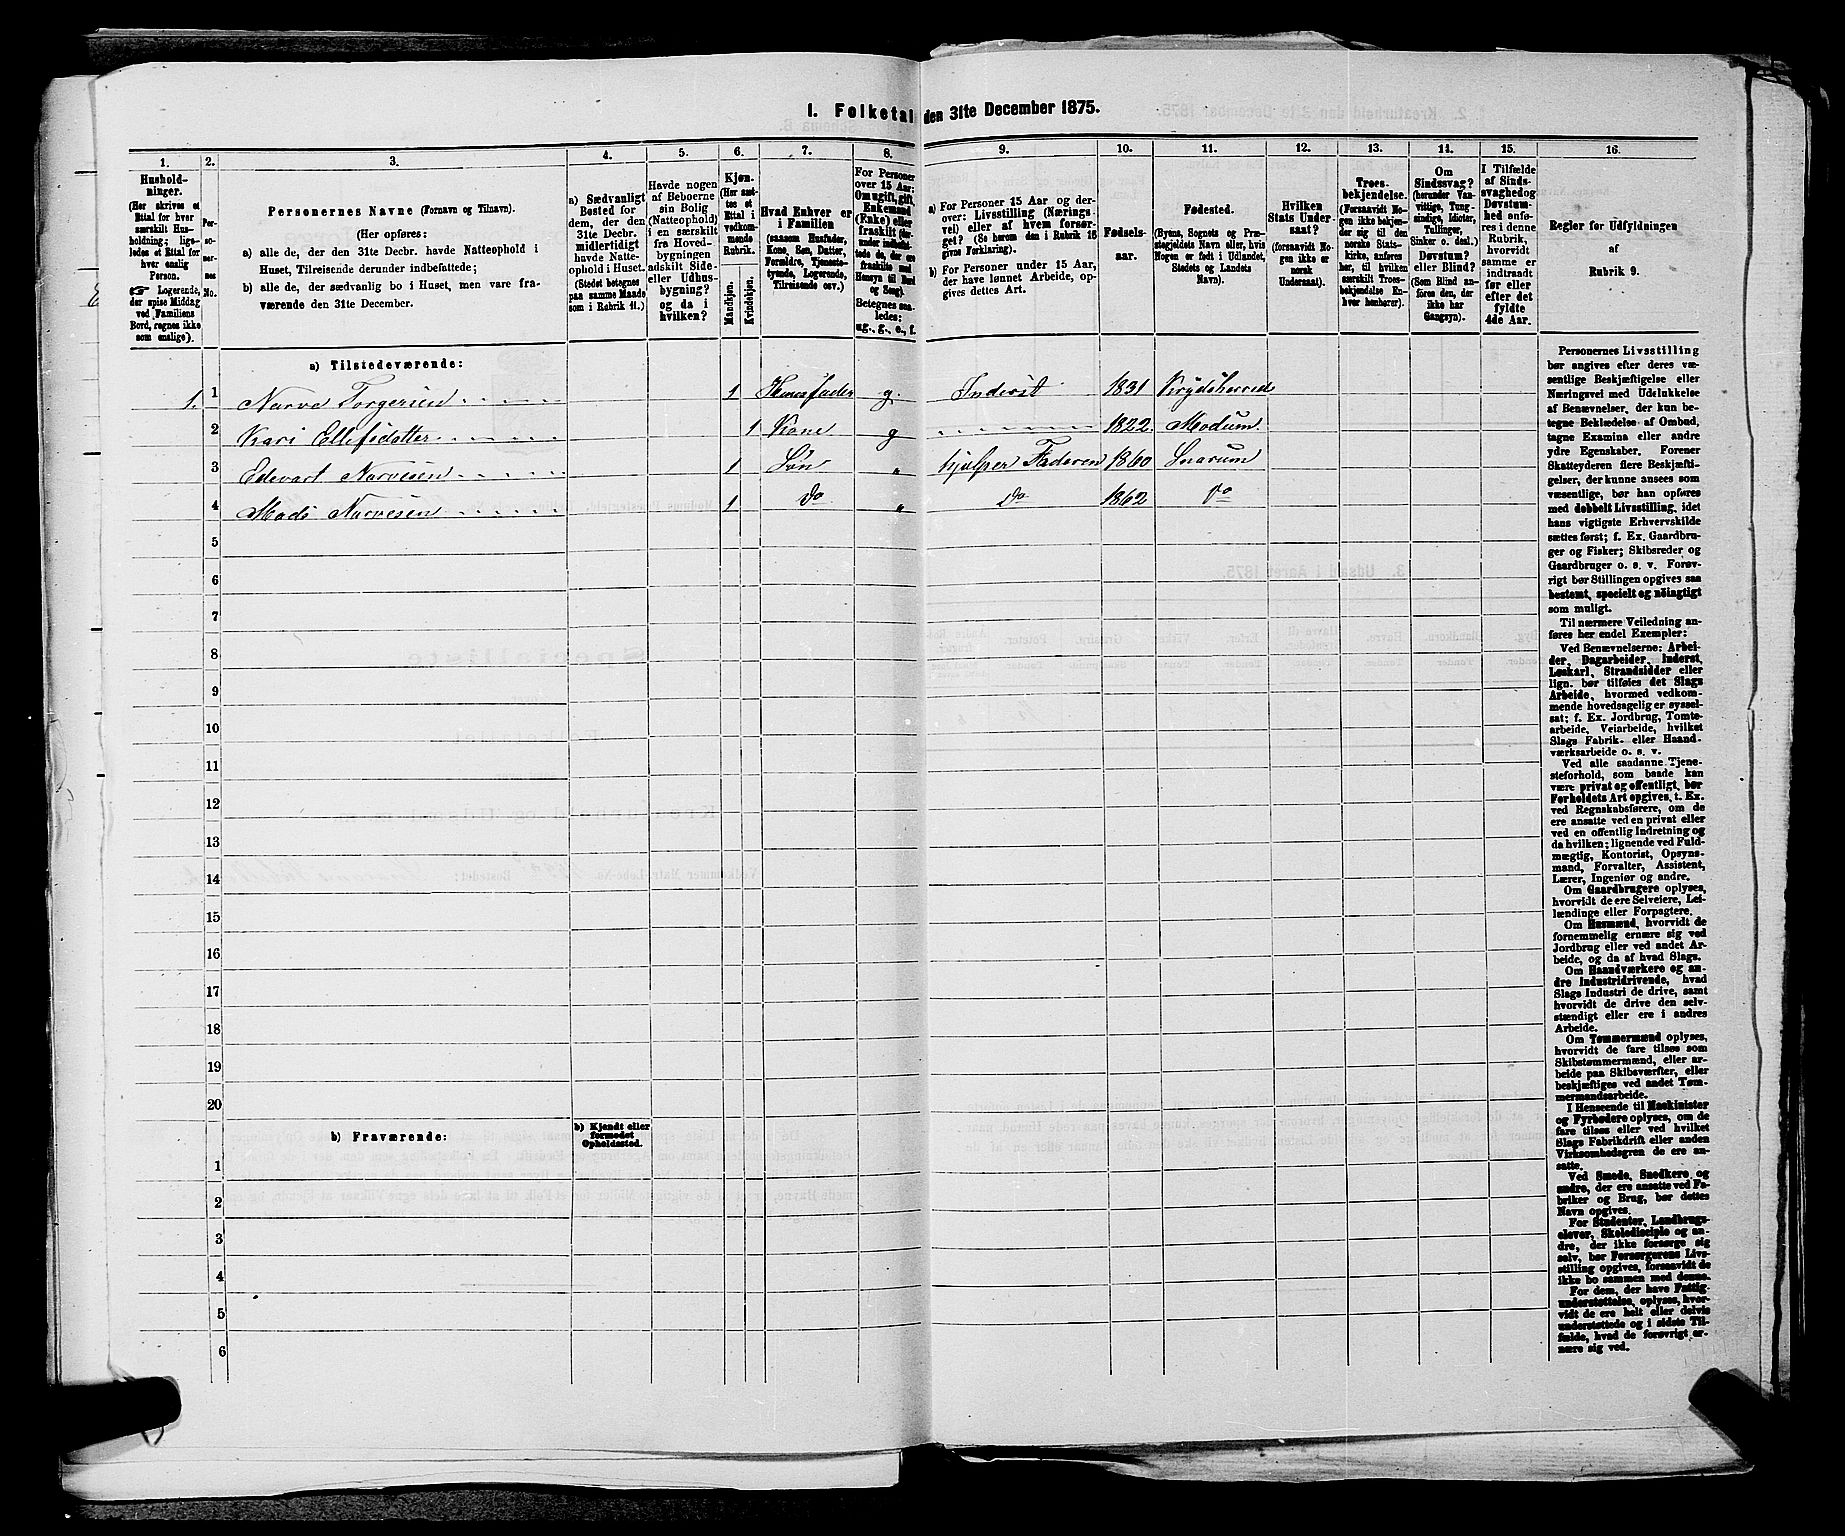 1. Folketal den 31te December 1875.
1.
2.
3.
4.
5.
6.
7.
8.
9.
10.
11.
12.
13.
14.
15.
16.
Hushold-
ninger.
(Her skrives et
Ettal for hver
særskilt Hus-
holdning; lige-
ledes et Ettal for
hver enslig
Person.
☞ Logerende,
der spise Middag
ved Familiens
Bord, regnes ikke
som enslige).
Per-
so-
ner-
nes
No.
Personernes Navne (Fornavn og Tilnavn).
(Her opføres:
a) alle de, der den 31te Decbr. havde Natteophold i
Huset, Tilreisende derunder indbefattede;
b) alle de, der sædvanlig bo i Huset, men vare fra-
værende den 31te December.
a) Sædvanligt
Bosted for
dem, der den
31te Decbr.
midlertidigt
havde Natte-
ophold i Huset.
(Stedet betegnes
paa samme Maade
som i Rubrik 11.)
Havde nogen
af Beboerne
sin Bolig
(Natteophold)
i en særskilt
fra Hoved-
bygningen
adskilt Side-
eller Udhus-
bygning?
og da i
hvilken?
Kjøn.
(Her sæt-
tes et
Ettal i
vedkom-
mende
Rubrik.
Mandkjøn.
Kvindekjøn.
Hvad Enhver er
i Familien
(saasom Husfader,
Kone, Søn, Datter,
Forældre, Tjeneste-
tyende, Logerende,
Tilreisende osv.)
For Personer
over 15 Aar:
Om ugift, gift,
Enkemand
(Enke) eller
fraskilt
Betegnes saa-
ledes:
ug., g., e., f.
a) For Personer 15 Aar og der-
over: Livsstilling (Nærings-
vei) eller af hvem forsør-
get? (Se herom den i Rubrik 16
givne Forklaring).
b) For Personer under 15 Aar,
der have lønnet Arbeide, op-
gives dettes Art.
Fødsels-
aar.
Fødested.
(Byens, Sognets og Præ-
stegjeldets Navn eller, hvis
Nogen er født i Udlandet,
Stedets og Landets
Navn).
Hvilken
Stats Under-
saat?
(forsaavidt No-
gen ikke er
norsk
Undersaat).
Troes-
bekjendelse.
(Forsaavidt No-
gen ikke bekjen-
der sig til den
norske Stats-
kirke, anføres
her, til hvilken
særskilt Troes-
bekjendelse En-
hver henhører).
Om
Sindssvag?
(herunder Van-
vittige, Tung-
sindige, Idioter,
Tullinger,
Sinker o. desl.)
Døvstum?
eller Blind?
(Som Blind an-
føres den, der
ikke har
Gangsyn).
I Tilfælde
af Sinds-
svaghed og
Døvstum-
hed anfø-
res i denne
Rubrik,
hvorvidt
samme er
indtraadt
før eller
efter det
fyldte
4de Aar.
Regler for Udfyldningen
af
Rubrik 9.
a) Tilstedeværende:
1. 1 Narve Torgersen 1 Huusfader g. Inderst 1831 Krydsherred
2 Kari Ellefsdatter 1 Kone g 1822. Modum
3 Edevart Narvesen 1 Søn " hjælper Faderen 1860 Snarum
4 Mads Narvesen 1 do " do 1862 do
5
6
7
8
9
10
11
12
13
14
15
16
17
18
19
20
b) Fraværende:
b) Kjendt eller
formodet
Opholdssted.
1
2
3
4
5
6
Personernes Livsstilling
bør angives efter deres væ-
sentlige Beskjæftigelse eller
Næringsvei med Udelukkelse
af Benævnelser, der kun be-
tegne Beklædelse af Ombud,
tagne Examina eller andre
ydre Egenskaber. Forener
Skatteyderen flere Beskjæfti-
gelser, der kunne ansees som
væsentlige, bør han opføres
med dobbelt Livsstilling, idet
hans vigtigste Erhvervskilde
sættes først; f. Ex. Gaardbru-
ger og Fisker; Skibsreder og
Gaardbruger o. s. v. Forøv-
rigt bør Stillingen opgives saa
bestemt, specielt og nöiagtigt
som muligt.
Til nærmere Veiledning an-
føres her endel Exempler:
Ved Benævnelserne: Arbei-
der, Dagarbeider, Inderst,
Løskarl, Strandsidder eller
lign. bør tilføies det Slags
Arbeide, hvormed vedkom-
mende hovedsagelig er syssel-
sat; f. Ex. Jordbrug, Tomte-
arbeide, Veiarbeide, hvilket
Slags Fabrik- eller Haand-
værksarbeide o. s. v.
Ved alle saadanne Tjene-
steforhold, som baade kan
være privat og offentligt, bør
Forholdets Art opgives, t. Ex.
ved Regnskabsførere, om de
ere ansatte ved en privat eller
ved en offentlig Indretning og
da hvilken; lignende ved Fuld-
mægtig, Kontorist, Opsyns-
mand, Forvalter, Assistent,
Lærer, Ingeniør og andre.
Om Gaardbrugere oplyses,
hvorvidt de ere Selveiere, Lei-
lændinge eller Forpagtere.
Om Husmænd, hvorvidt de
fornemmelig ernære sig ved
Jordbrug eller ved andet Ar-
beide, og da af hvad Slags.
Om Haandværkere og an-
dre Industridrivende, hvad
Slags Industri de drive, samt
hvorvidt de drive den selv-
stændigt eller ere i andres
Arbeide.
Om Tømmermænd oplyses,
hvorvidt de fare tilsøs som
Skibstømmermænd, eller ar-
beide paa Skibsværfter, eller
beskjæftiges ved andet Tøm-
mermandsarbeide.
I Henseende til Maskinister
og Fyrbødere oplyses, om de
fare tilsøs eller ved hvilket
Slags Fabrikdrift eller anden
Virksomhedsgren de ere an-
satte.
Ved Smede, Snedkere og
andre, der ere ansatte ved Fa-
briker og Brug, bør dettes
Navn opgives.
For Studenter, Landbrugs-
elever, Skoledisciple og an-
dre, der ikke forsørge sig
selv, bør Forsørgerens Livs-
stilling opgives, forsaavidt de
ikke bo sammen med denne.
For dem, der have Fattig-
understøttelse, oplyses, hvor-
vidt de ere helt eller delvis
understøttede og i sidste Til-
fælde, hvad de forøvrigt er-
nære sig ved.